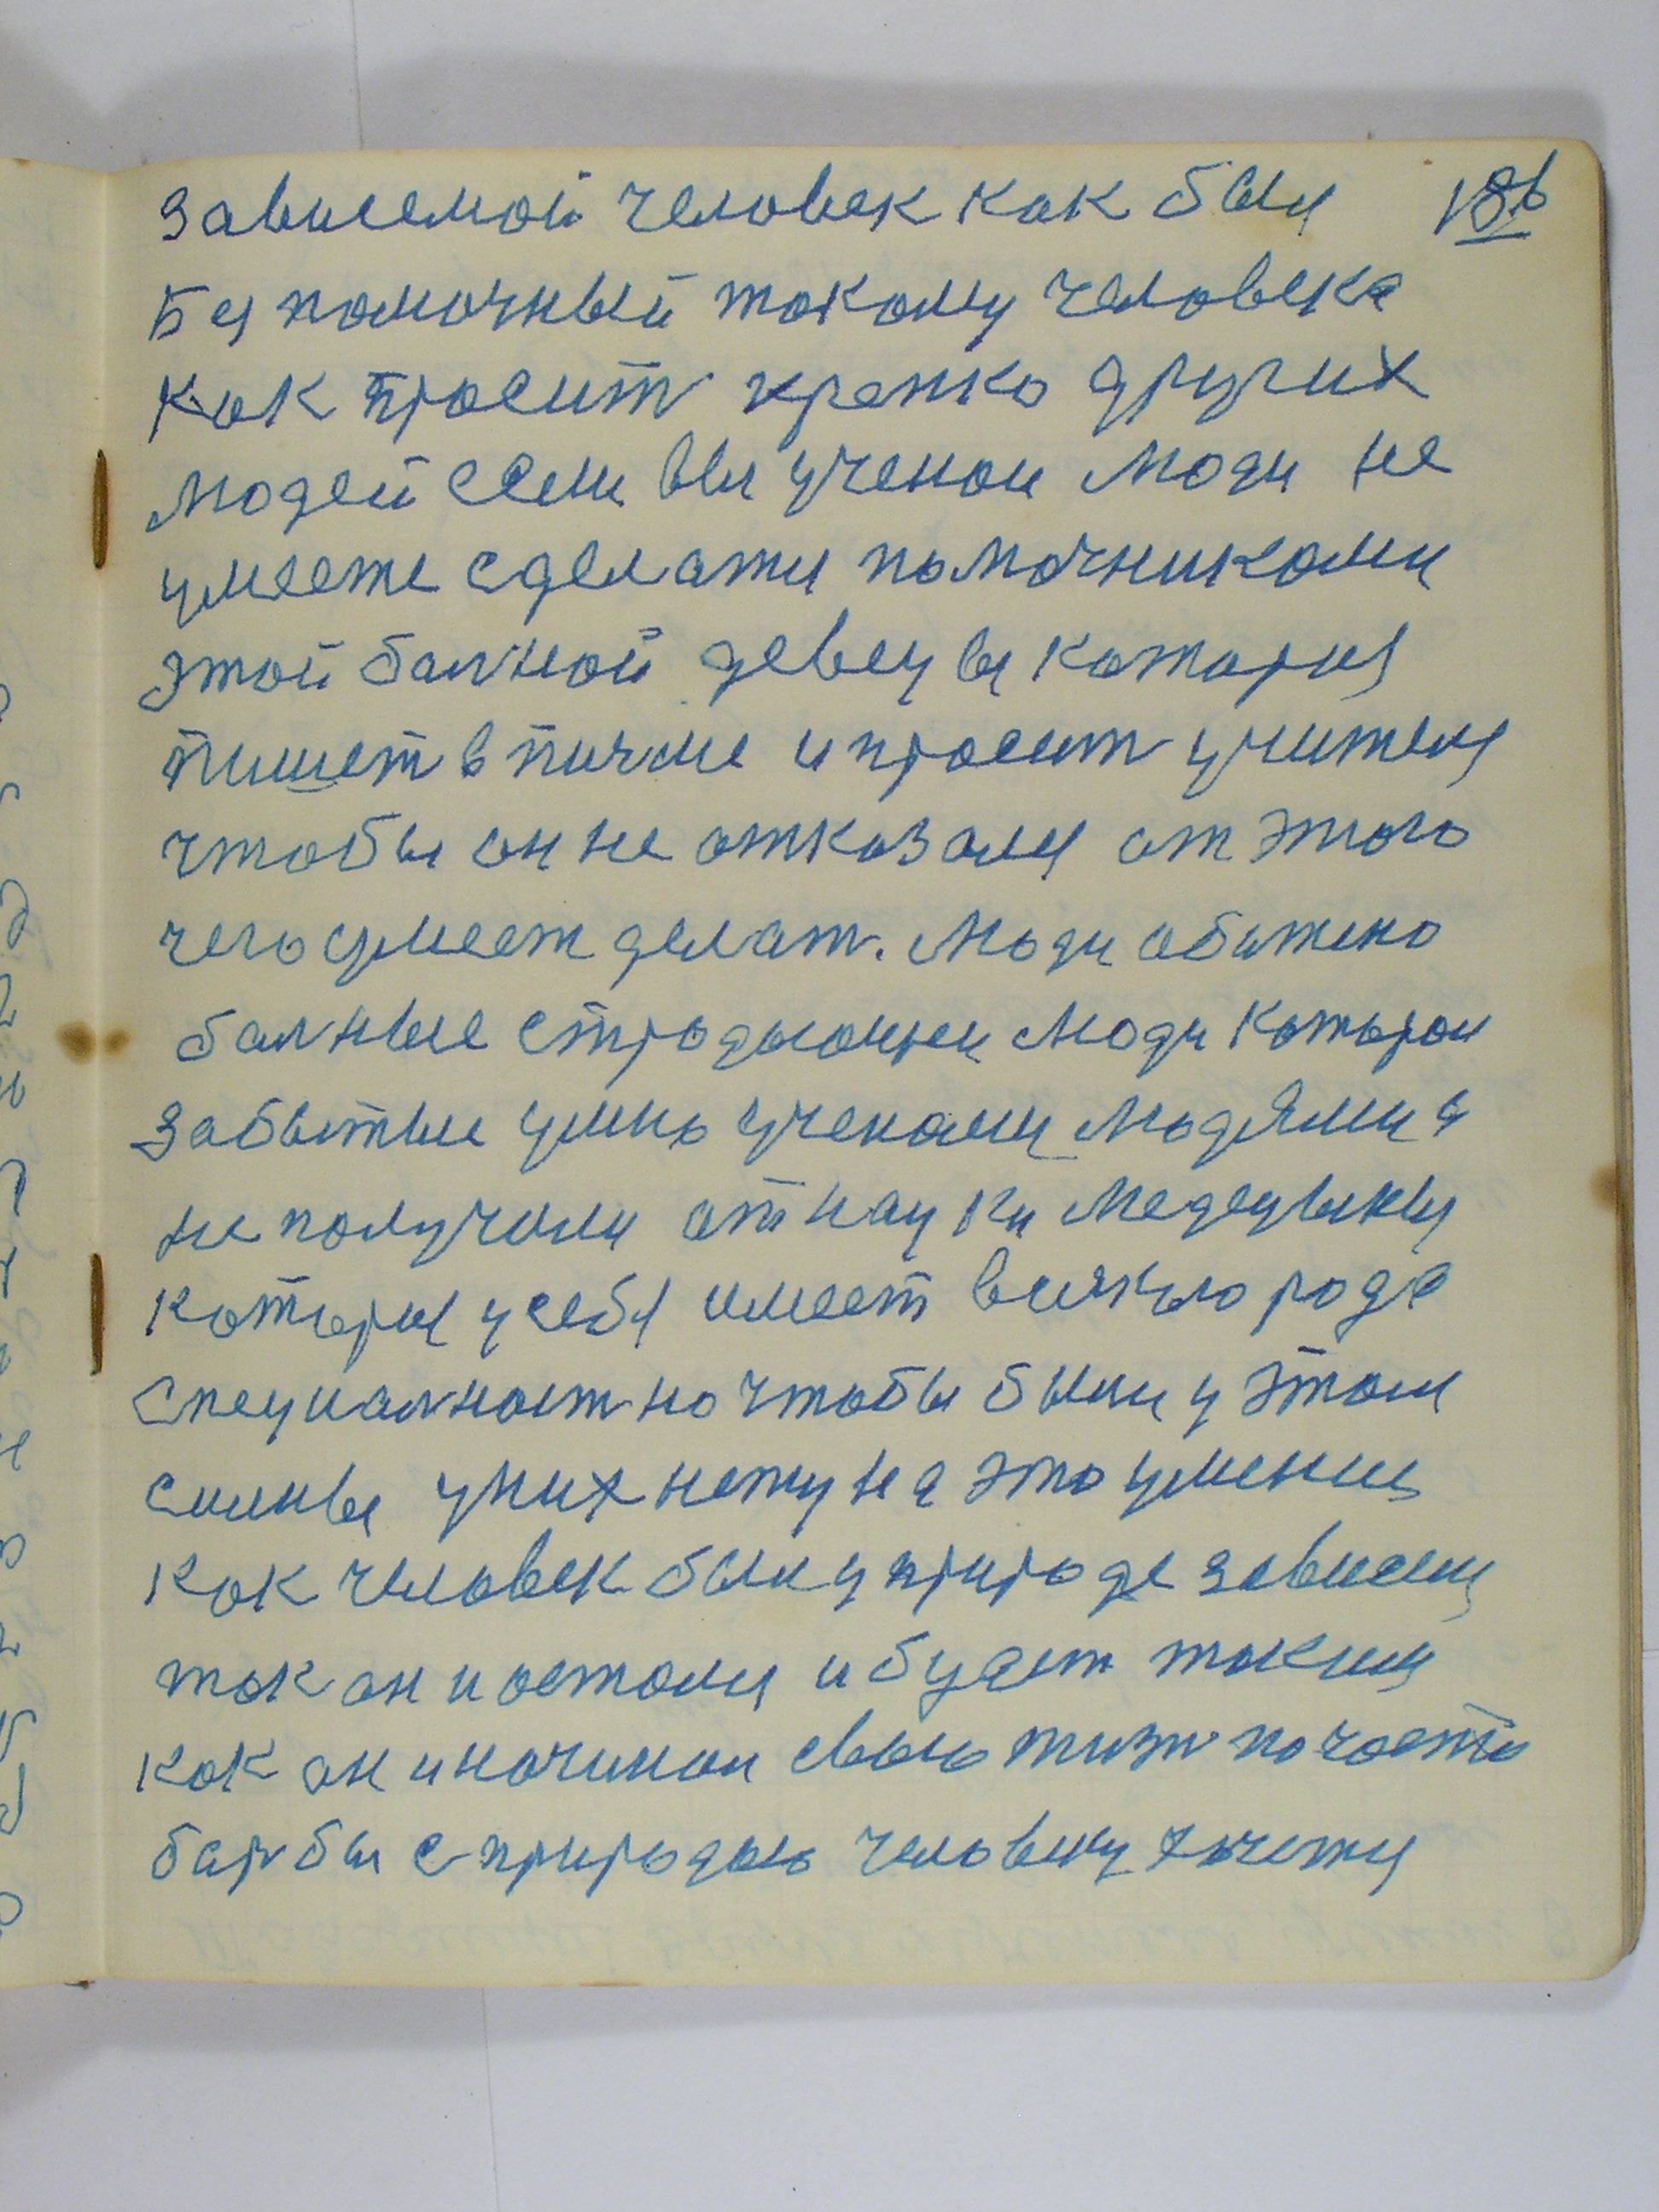 зависемой человек как был 186
Беспомочный такому человека
как просит крепко других
людей если вы ученои люди не
умеете сделатся помочниками
этой балной девец вы каторуя
пишет в писме и просит учителя
чтобы он не отказался от этого
чего умеет делат. Люди обижено
балные страдающии люди каторои
забытые умно учеными людями а
не получили от науки медецыны
каторыя у себя имеет всякаго рода
специалност но чтобы были у этом
силы у них нету на это умения
как человек был у природе зависем
так он и остался и будет таким
как он и начинал свою жизн по части
барбы с природаю человеку хочется